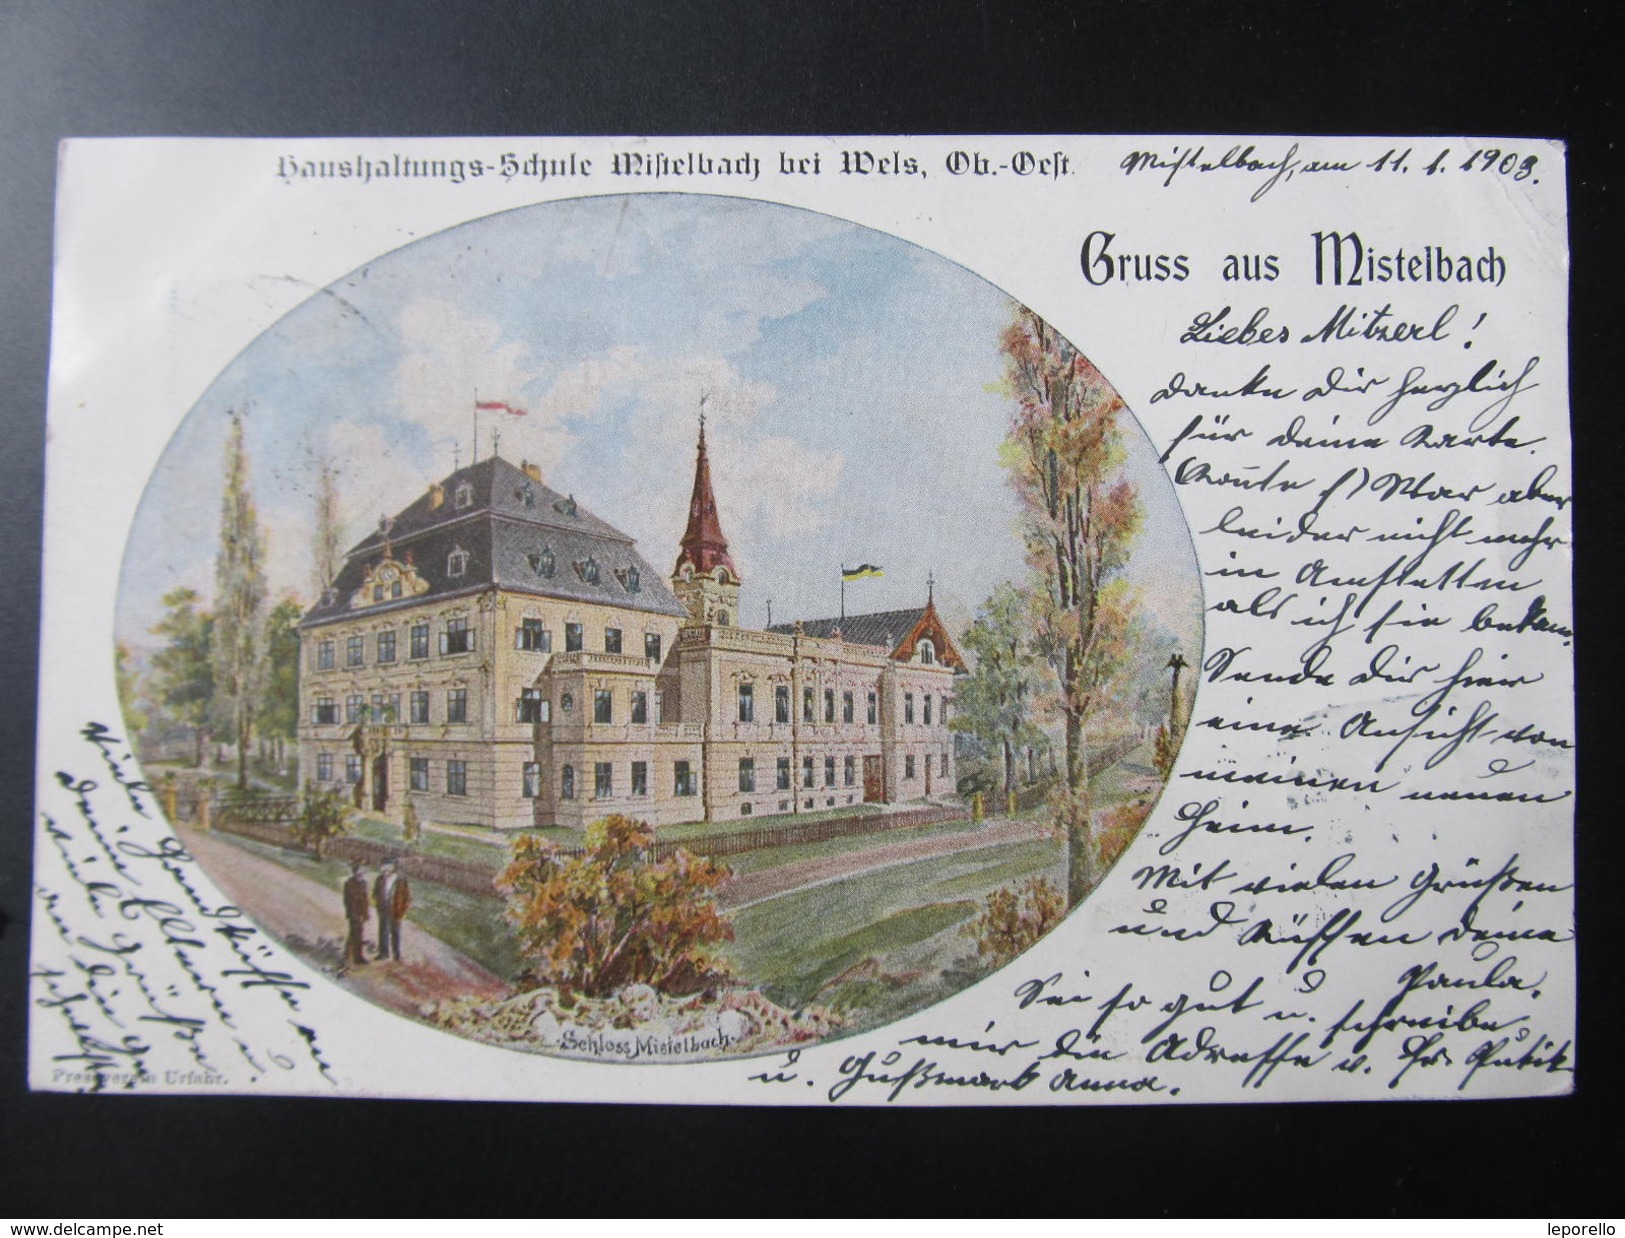 Haushaltungs-Schule Mistelbach bei Wels, Ob.-Oest.
Mistelbach, am 11. 1. 1903.
Gruss aus Mistelbach
Liebes Mitzerl!
Danke Dir herzlich
für deine Karte.
(Route !) War aber
leider nicht mehr
in Amstetten
als ich sie bekam.
Sende Dir hier
eine Ansicht von
meinen neuen
Heim.
Mit vielen Grüßen
und Küssen deine
Paula.
Sei so gut u. schreibe
mir die Adresse v. Hr.
u. Gußmack Anna.
Viele Handküsse an
Deine Eltern u.
viele Grüße
an die
Schloss Mistelbach
Pressverein Urfahr.
www.delcampe.net
leporello